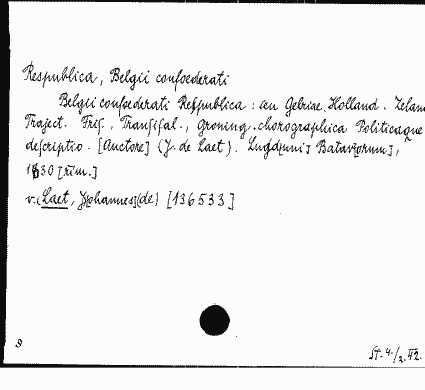 Respublica, Belgii confoederati
Belgii confoederati Respublica: seu Gelriae. Holland. Zeland
Traject. Fris., Transisal., Groning. chorographica Politicaque
descriptio. [Auctore] (J. de Laet). Lugd[uni] Batav[orum],
1630 [rim.]
v. (Laet, J[ohannes] (de) [136533]
St. 4./2. VI.